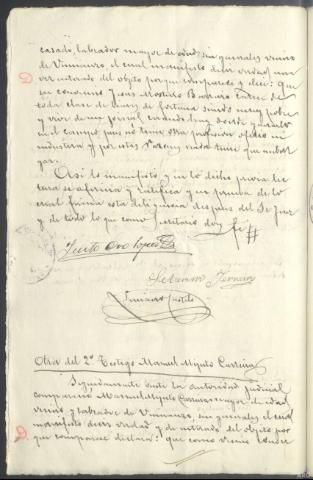 casado, labrador mayor de edad, sin generales vecino
de Vimianzo, el cual manifestó decir verdad, una
vez enterado del objeto porque comparece y dice: Que
su convecino Jesús
toda clase de bienes de fortuna siendo muy pobre
y vive de un jornal cuando hay donde ganarlo
en el campo, pues no tiene otra profesión oficio ni
industria y por estas razones nada tiene que embar-
gar.
Así lo manifestó y en lo dicho previa lec-
tura se afirma y ratifica y en prueba de lo
cual firma esta diligencia después del Sr Juez
y de todo lo que como Secretario doy fe
Otra del 2º Testigo Manuel Carreira
Seguidamente ante la autoridad judicial
compareció Manuel Carreira mayor de edad
vecino y labrador de Vimianzo, sin generales el cual
manifestó decir verdad y de enterado del objeto por
que comparece declara: que como vecino